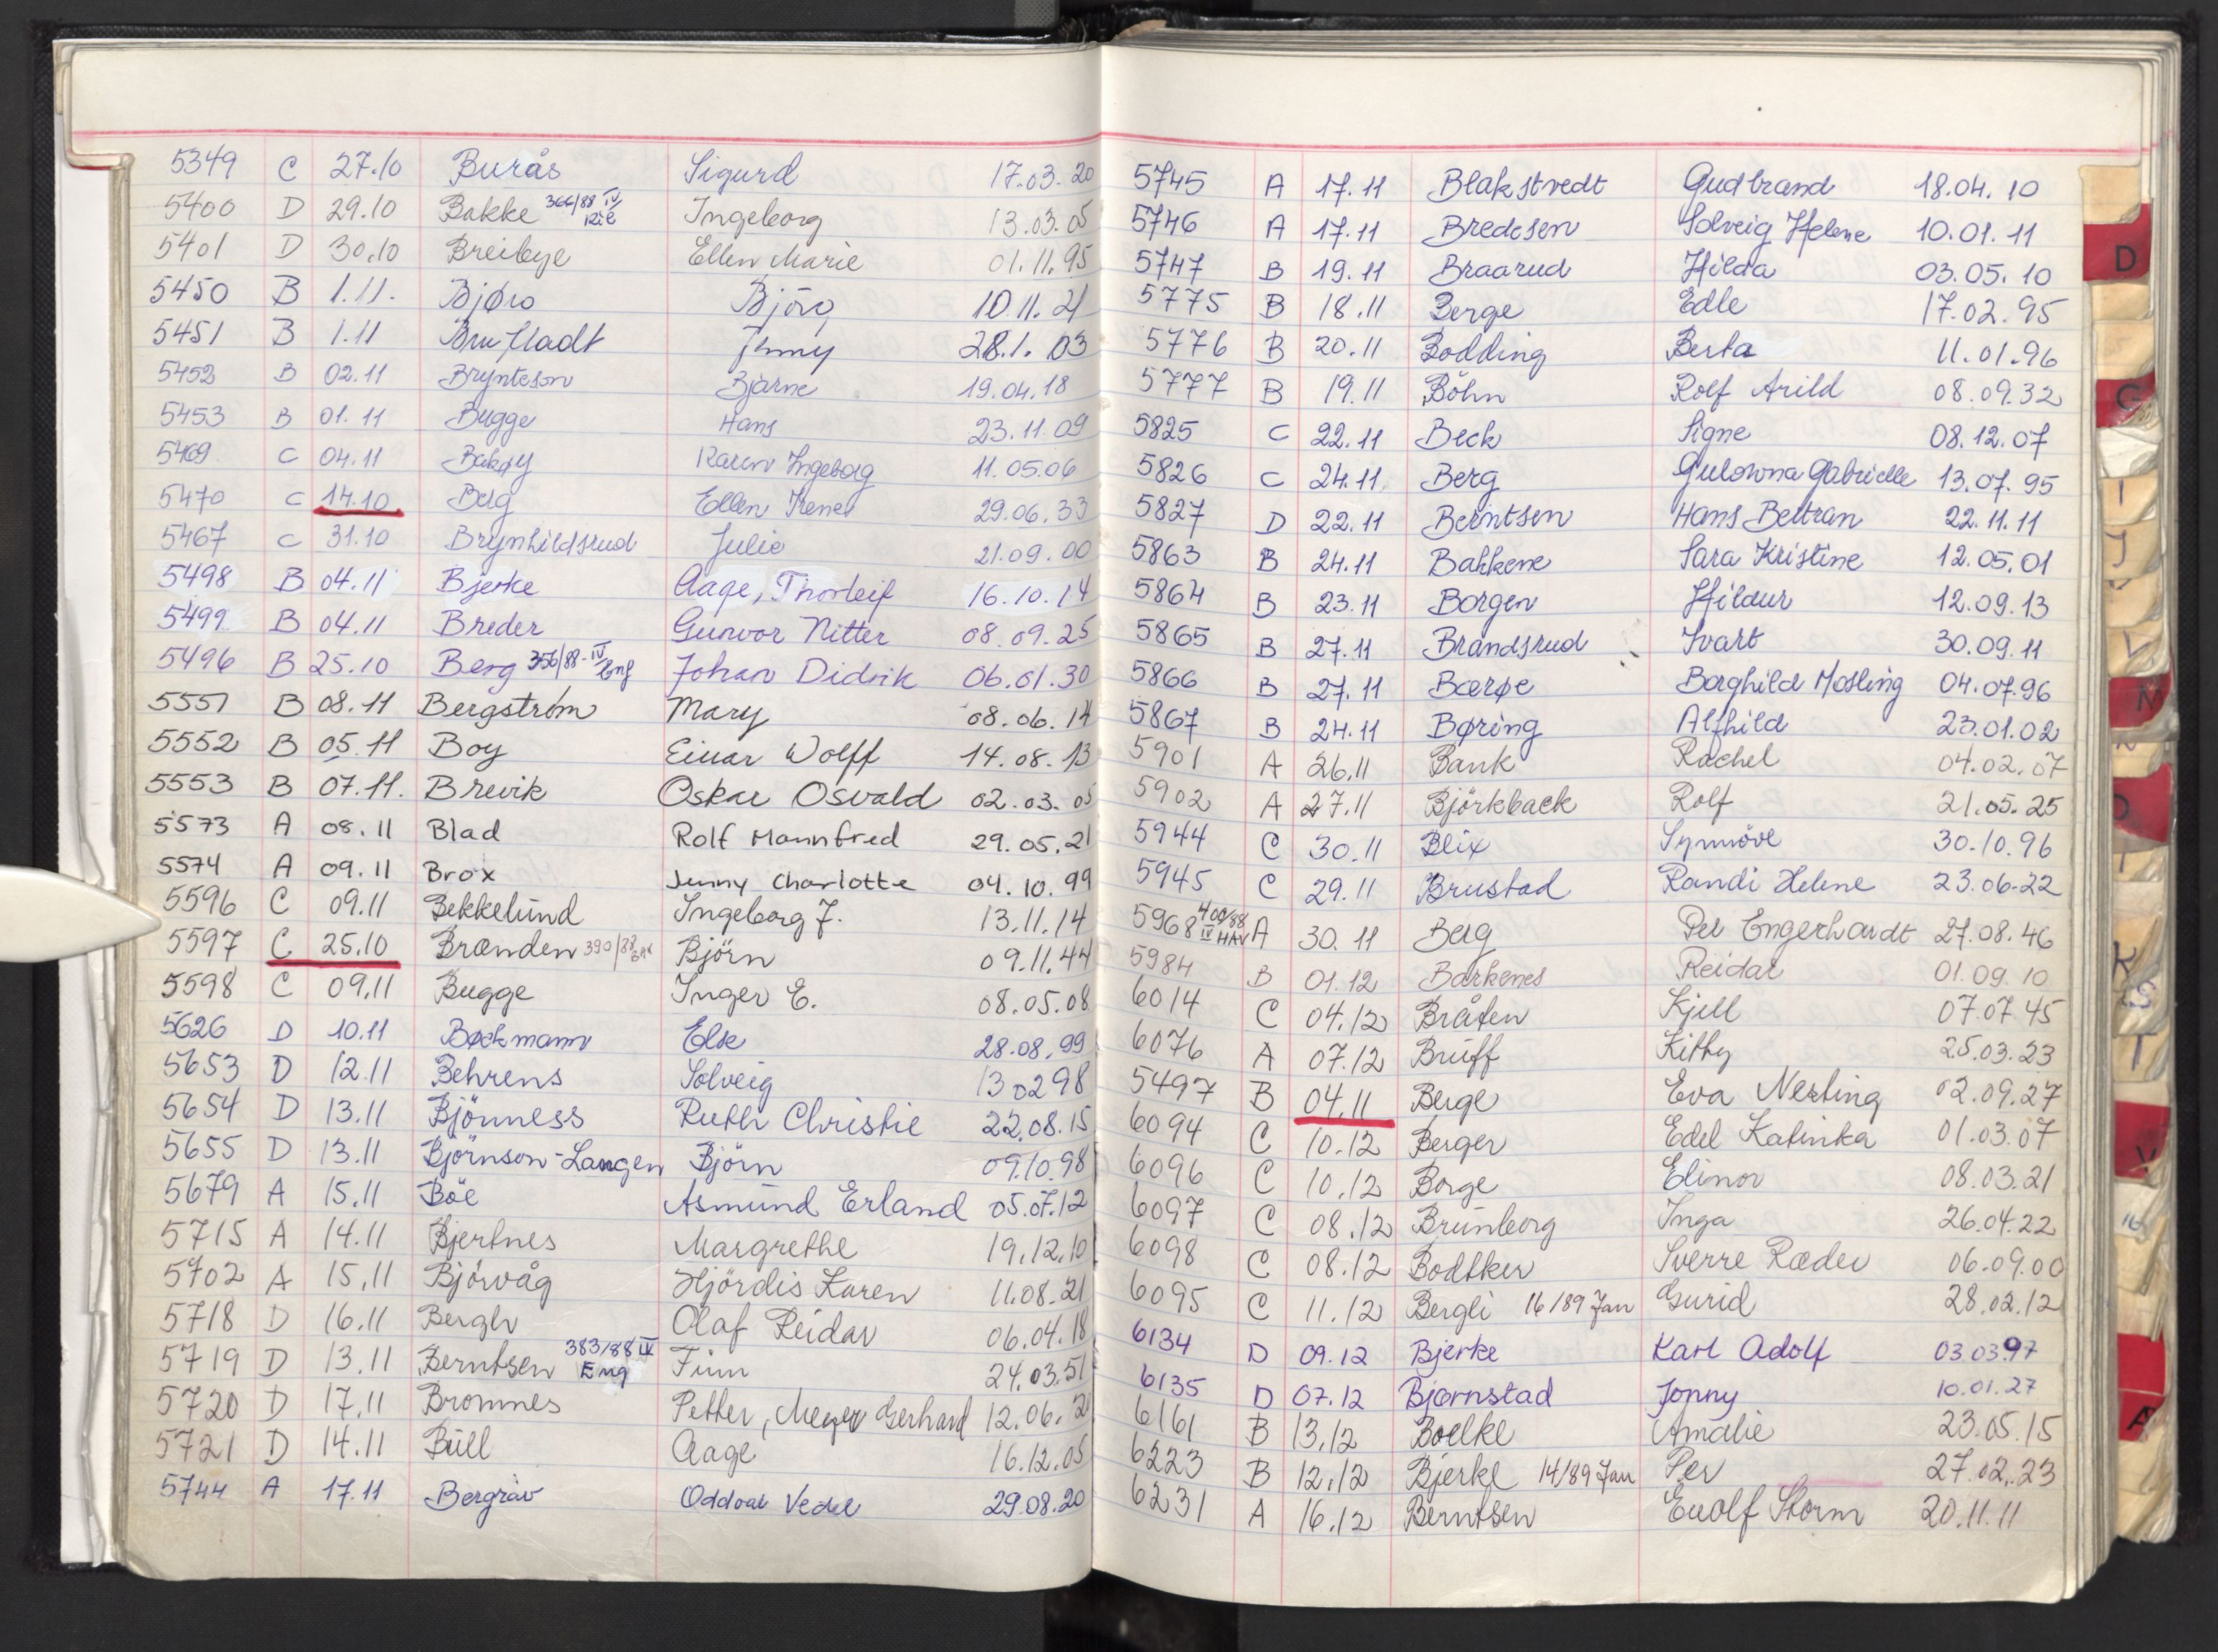 5349 C 27.10 Burås Sigurd 17.03.20
5400 D 29.10 Bakke 366/88 IV Ingeborg 13.03.05
5401 D 30.10 Breibye Ellen Marie 01.11.95
5450 B 1.11. Bjøro Björg 10.11.21
5451 B 1.11 Jenny 28.1.03
5452 B 02.11 Brynteson Bjarne 19.04.18
5453 B 01.11 Bugge Hans 23.11.09
5469 C 04.11 Bakøy Karen Ingeborg 11.05.06
5470 C 14.10 Berg Ellen Irene 29.06.33
5467 C 31.10 Brynhildsrud Julie 21.09.00
5498 B 04.11 Bjerke Aage, Thorleif 16.10.14
5499 B 04.11 Breder Gunvor Nitter 08.09.25
5496 B 25.10 Berg 356/88-IV Eng Johan Didrik 06.01.30
5551 B 08.11 Bergström Mary 08.06.14
5552 B 05.11 Boy Einar Wolff 14.08.13
5553 B 07.11. Brevik Oskar Osvald 02.03.05
5573 A 08.11 Blad Rolf Mannfred 29.05.21
5574 A 09.11 Brox Jenny Charlotte 04.10.99
5596 C 09.11 Bekkelund Ingeborg J. 13.11.14
5597 C 25.10 Brænden 390/88 Björn 09.11.44
5598 C 09.11 Bugge Inger E. 08.05.08
5626 D 10.11 Bøckmann Else 28.08.99
5653 D 12.11 Behrens Solveig 130298
5654 D 13.11 Bjönness Ruth Christie 22.08.15
5655 D 13.11 Björnson-Langen Björn 09.10.98
5679 A 15.11 Böe Asmund Erland 05.07.12
5715 A 14.11 Bjertnes Margrethe 19.12.10
5702 A 15.11 Bjørvåg Hjördis Karen 11.08.21
5718 D 16.11 Bergh Olaf Reidar 06.04.18
5719 D 13.11 Berntsen 383/88 IV Eng Finn 24.03.51
5720 D 17.11 Bromnes Petter, Meyer Gerhard 12.06.20
5721 D 14.11 Büll Aage 16.12.05
5744 A 17.11 Bergrav Oddvar Vedel 29.08.20
5745 A 17.11 Blakstvedt Gudbrand 18.04.10
5746 A 17.11 Bredesen Solveig Helene 10.01.11
5747 B 19.11 Braarud Hilda 03.05.10
5775 B 18.11 Berge Edle 17.02.95
5776 B 20.11 Bodding Berta 11.01.96
5777 B 19.11 Böhn Rolf Arild 08.09.32
5825 C 22.11 Beck Signe 08.12.07
5826 C 24.11 Berg Gulowna Gabrielle 13.07.95
5827 D 22.11 Berntsen Hans Beltran 22.11.11
5863 B 24.11 Bakkene Sara Kristine 12.05.01
5864 B 23.11 Borgen Hildur 12.09.13
5865 B 27.11 Brandsrud Ivart 30.09.11
5866 B 27.11 Bærøe Borghild Mosling 04.07.96
5867 B 24.11 Børing Alfhild 23.01.02
5901 A 26.11 Bank Rachel 04.02.07
5902 A 27.11 Björkback Rolf 21.05.25
5944 C 30.11 Blix Synnöve 30.10.96
5945 C 29.11 Brustad Randi Helene 23.06.22
5968 400/88 IV HAV A 30.11 Berg Per Engerhardt 27.08.46
5984 B 01.12 Barkenes Reidar 01.09.10
6014 C 04.12 Bråten Kjell 07.07.45
6076 A 07.12 Bruff Kitty 25.03.23
5497 B 04.11 Berge Eva Nerting 02.09.27
6094 C 10.12 Berger Edel Katinka 01.03.07
6096 C 10.12 Borge Elinor 08.03.21
6097 C 08.12 Brunborg Inga 26.04.22
6098 C 08.12 Bodtker Sverre Ræder 06.09.00
6095 C 11.12 Bergli 16/89 Jan Gurid 28.02.12
6134 D 09.12 Bjerke Karl Adolf 03.03.97
6135 D 07.12 Bjørnstad Jonny 10.01.27
6161 B 13.12 Boelke Amalie 23.05.15
6223 B 12.12 Bjerke 14/89 Jan Per 27.02.23
6231 A 16.12 Berntsen Storm 20.11.11
D
G
I
J
V
M
K
S
T
V
A